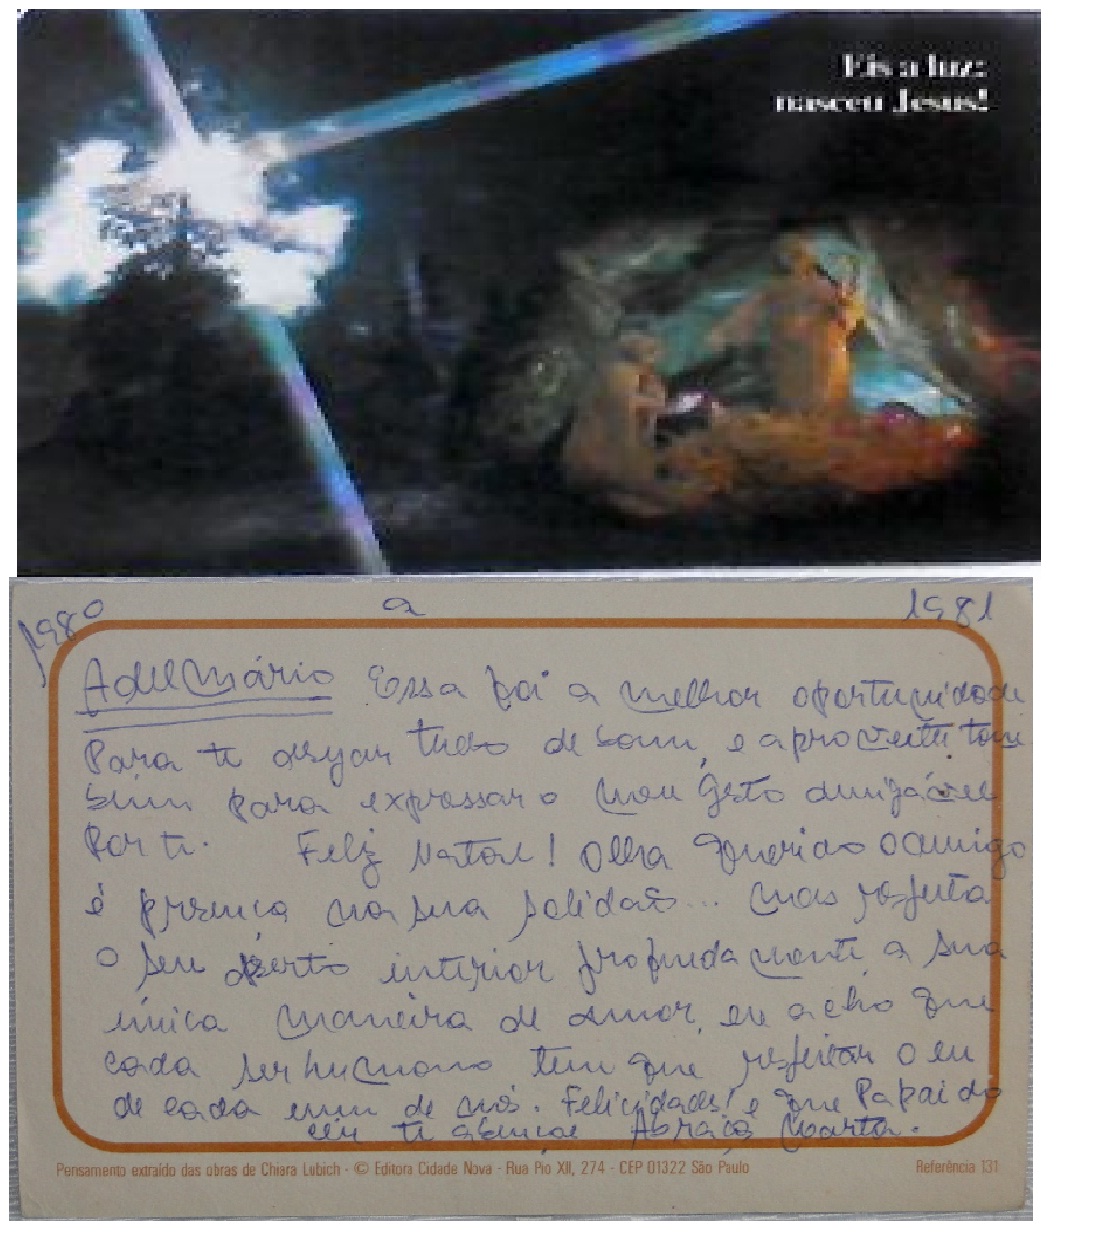 Eis a luz:
nasceu Jesus!
1980 a 1981
Adelmário Essa foi a melhor oportunidade
Para te desejar tudo de bom, e aproveitei tam
bém para expressar o meu gesto amigável
Por ti. Feliz Natal! Olha querido o amigo
é presença na sua solidão... mas respeita
o seu deserto interior profundamente, a sua
única maneira de amor, eu acho que
cada ser humano tem que respeitar o eu
de cada um de nós. Felicidades! e que Papai do
céu te abençoe Abraços Marta.
Pensamento extraído das obras de Chiara Lubich - © Editora Cidade Nova - Rua Pio XII, 274 - CEP 01322 São Paulo Referência 131